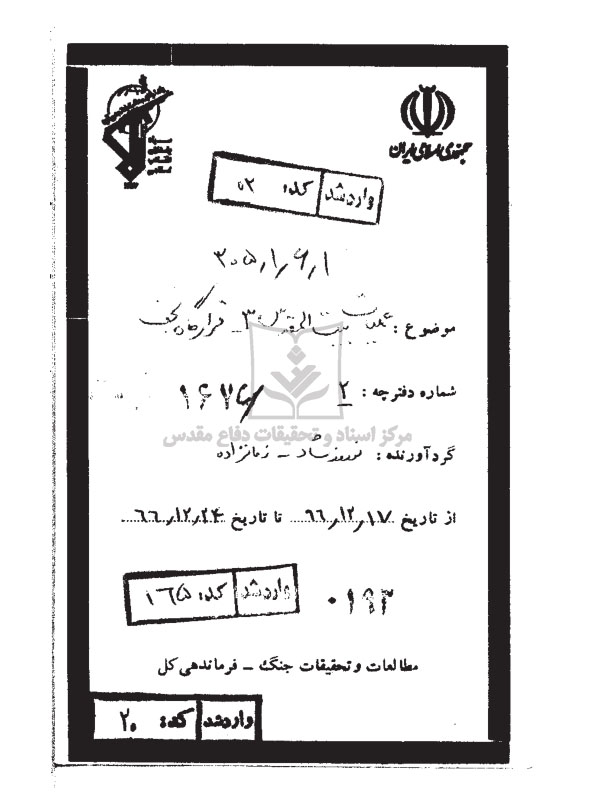 جمهوری اسلامی ایران
وارد شد کد: ۰۲
۳۰۵٫۱٫۶٫۱
موضوع: عملیات بیت المقدس ۳ - قرارگاه نجف
شماره دفترچه: ۲
مرکز اسناد و تحقیقات دفاع مقدس
گردآورنده: نوروزشاد - زمانزاده
از تاریخ ۶۶٫۱۲٫۱۷ تا تاریخ ۶۶٫۱۲٫۲۴
وارد شد کد: ۱۶۵
۰۱۹۳
مطالعات و تحقیقات جنگ - فرماندهی کل
وارد شد کد: ۲۰